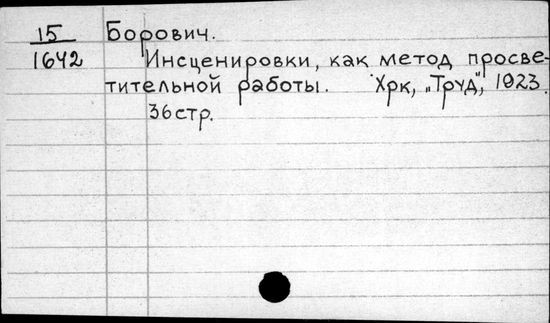 15 Борович.
1642 Инсценировки, как метод просве-
тительной работы. Хрк, „Труд", 1923.
36стр.